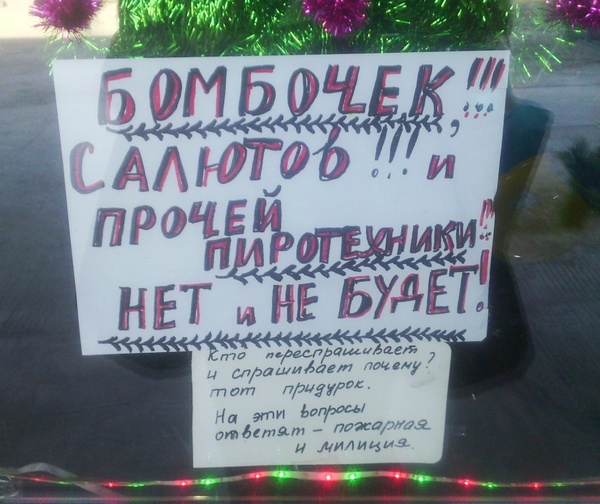 БОМБОЧЕК,!!!
САЛЮТОВ!!! и
ПРОЧЕЙ
ПИРОТЕХНИКИ!!
НЕТ и НЕ БУДЕТ!
Кто переспрашивает
и спрашивает почему?
тот придурок.
На эти вопросы
ответят – пожарная
и милиция.